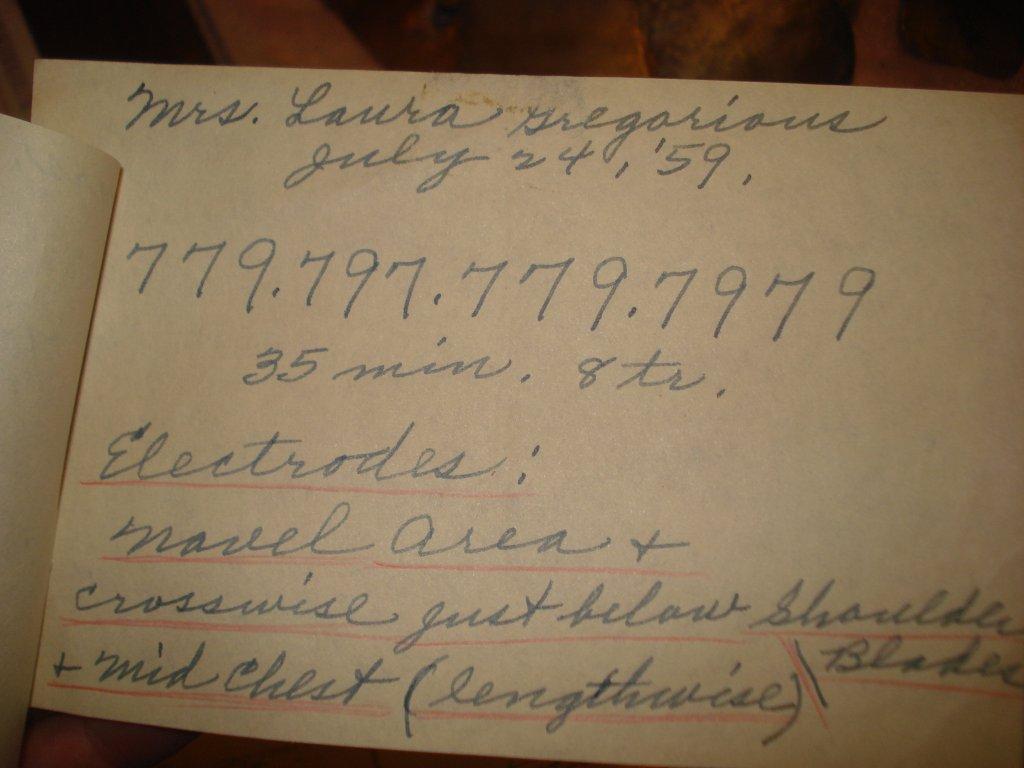 Mrs. Laura Gregorious
July 24, '59.
779.797.779.7979
35 min. 8 tr.
Electrodes:
Navel Area +
crosswise just below Shoulder
Blades
+ Mid Chest (lengthwise)